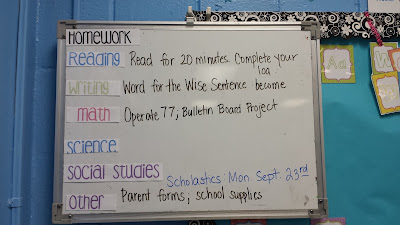 Homework
Reading Read for 20 minutes. Complete your
log
Writing Word for the Wise Sentence become
Math Operate 77; Bulletin Board Project
Science
Social Studies Scholastics: Mon. Sept. 23rd
Other Parent forms; school supplies
Aa